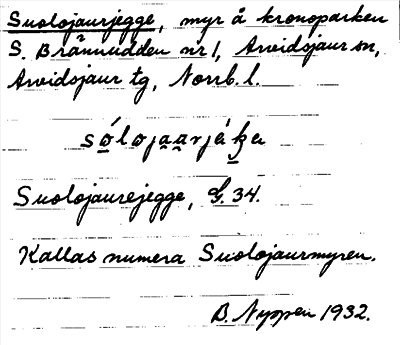 Suolojaurjegge, myr å kronoparken
S. Brännudden nr 1, Arvidsjaur sn,
Arvidsjaur tg, Norrb. l.
sólojaarjéka
Suolojaurejegge, G. 34.
Kallas numera Suolojaurmyren.
B. Nyppen 1932.